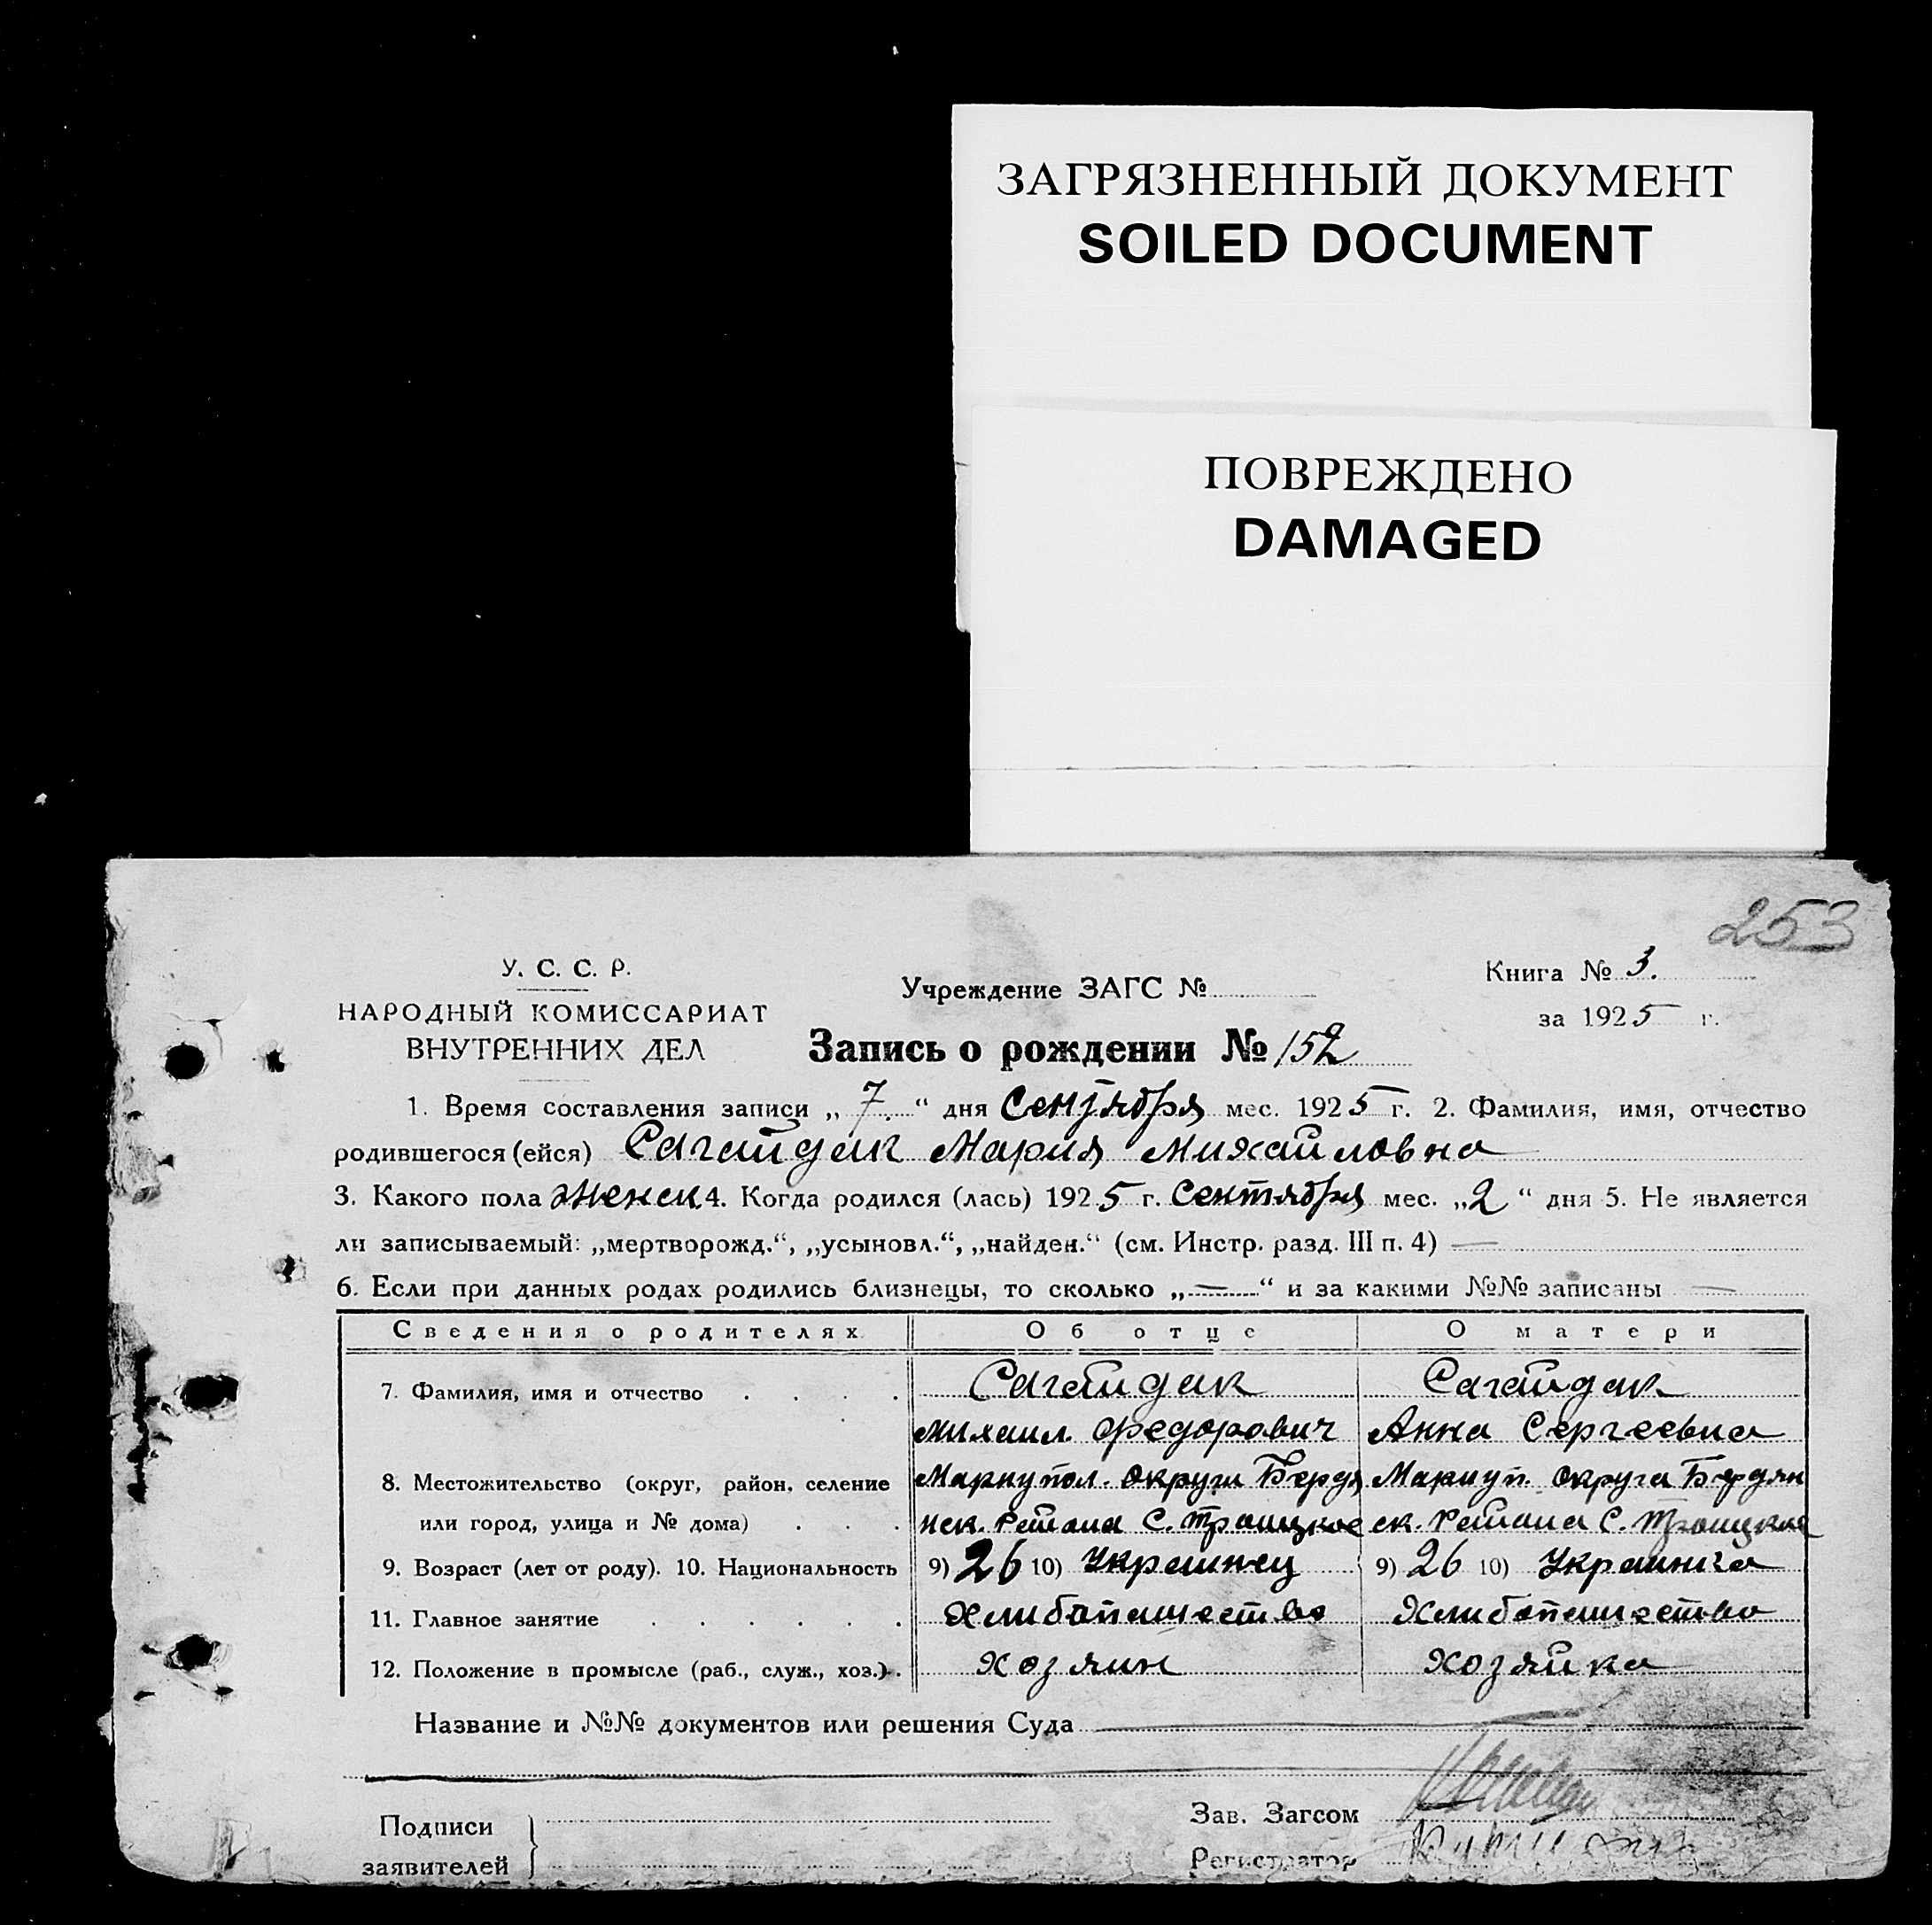 ЗАГРЯЗНЕННЫЙ ДОКУМЕНТ
SOILED DOCUMENT
ПОВРЕЖДЕНО
DAMAGED
253
У. С. С. Р.
НАРОДНЫЙ КОМИССАРИАТ
ВНУТРЕННИХ ДЕЛ
Учреждение ЗАГС №
Книга № 3.
за 1925 г.
Запись о рождении № 152
1. Время составления записи „ 7. “ дня Сентября мес. 1925 г. 2. Фамилия, имя, отчество
родившегося (ейся) Сагайдак Мария Михайловна
3. Какого пола женск. 4. Когда родился (лась) 1925 г. Сентября мес. „2“ дня 5. Не является
ли записываемый: „мертворожд.“, „усыновл.“, „найден.“ (см. Инстр. разд. III п. 4) —
6. Если при данных родах родились близнецы, то сколько „—“ и за какими №№ записаны —
Сведения о родителях Об отце О матери
7. Фамилия, имя и отчество . . . . Сагайдак Сагайдак
Михаил Федорович Анна Сергеевна
8. Местожительство (округ, район, селение Мариупол. округа Бердя Мариуп. округа Бердян
или город, улица и № дома) . . . нск. района С. Троицкое ск. района С. Троицкое
9. Возраст (лет от роду). 10. Национальность 9) 26 10) Украинец 9) 26 10) Украинка
11. Главное занятие . . . . . . Хлибопашество Хлибопашество
12. Положение в промысле (раб., служ., хоз.) . хозяин хозяйка
Название и №№ документов или решения Суда
Подписи
заявителей
Зав. Загсом
Регистратор